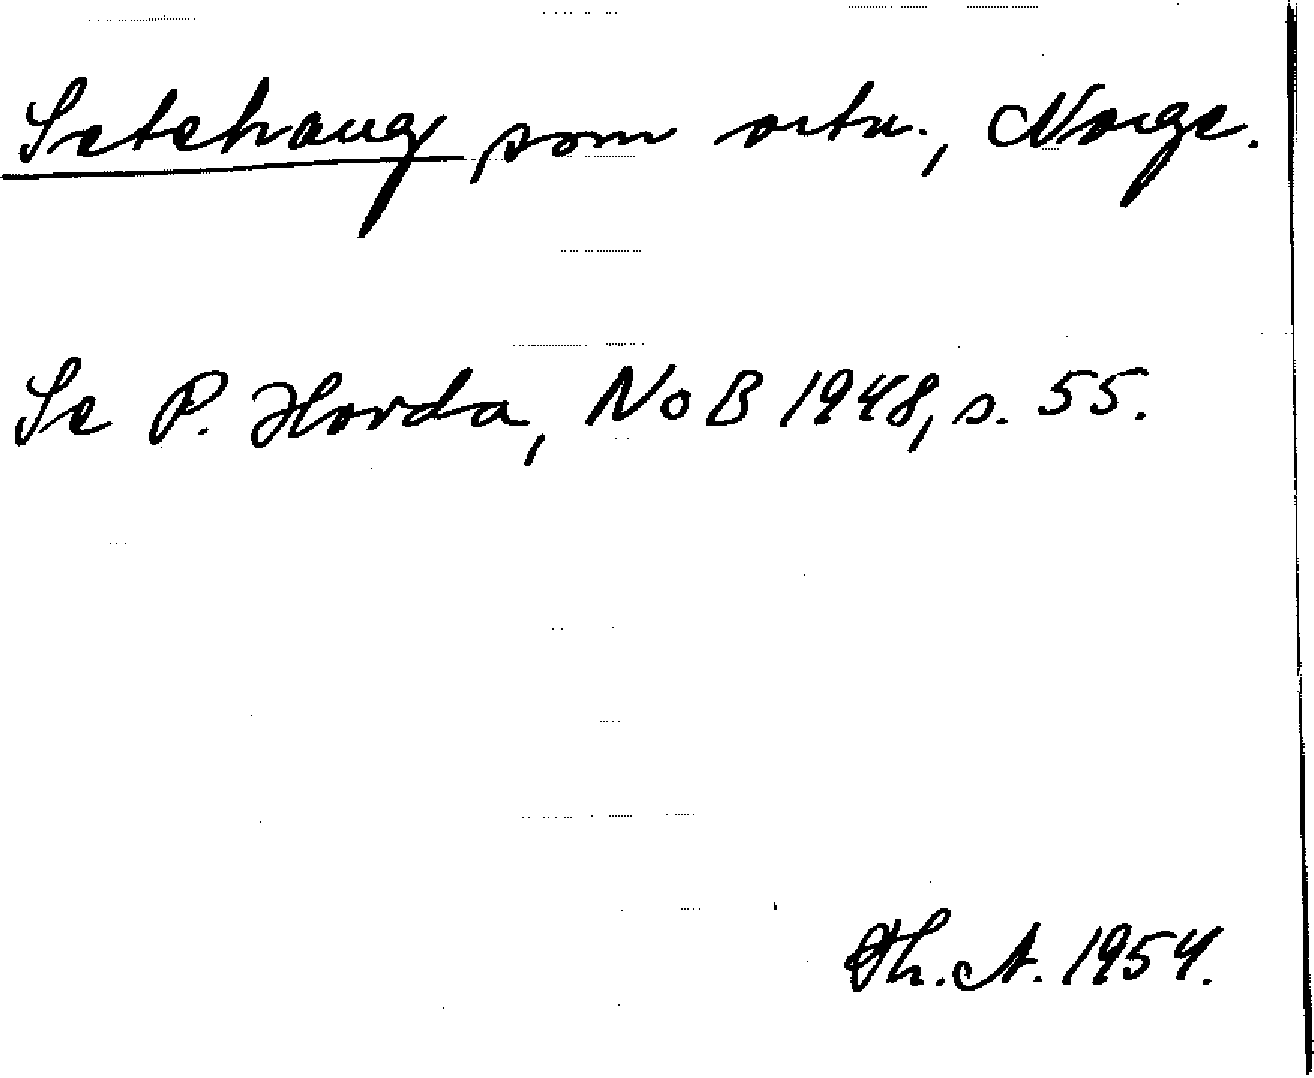 Setehaug som ortn., Norge.
Se P. Hovda, NoB 1948, s. 55.
Th. A. 1954.